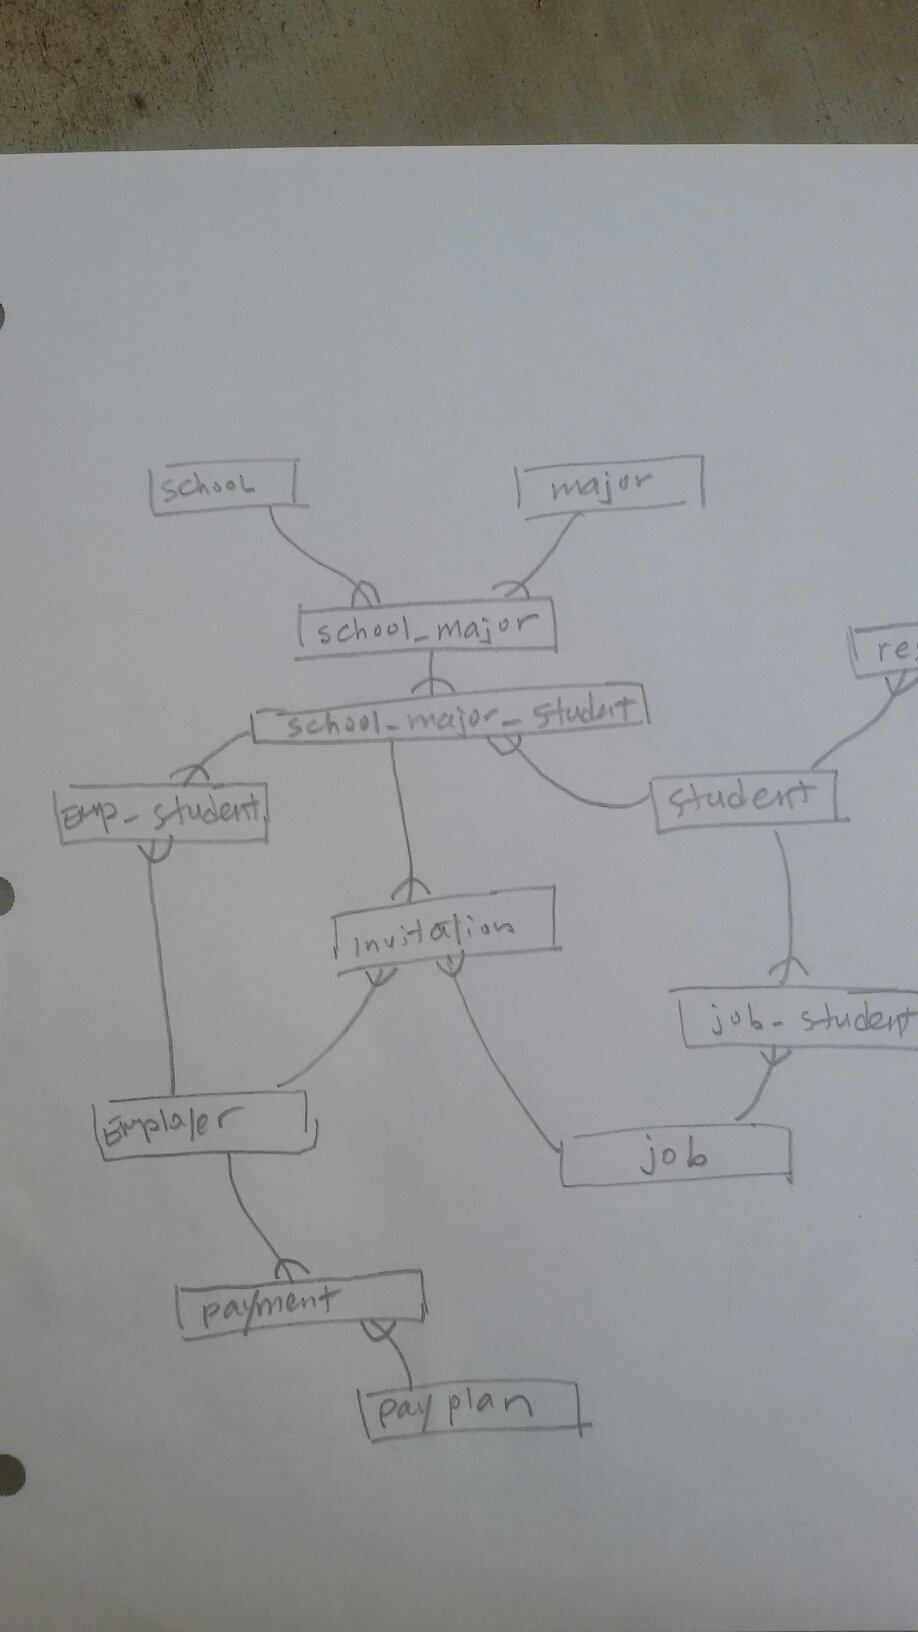 school
major
school_major
res
school_major_student
Emp_student
student
Invitation
job_student
Employer
job
payment
pay plan